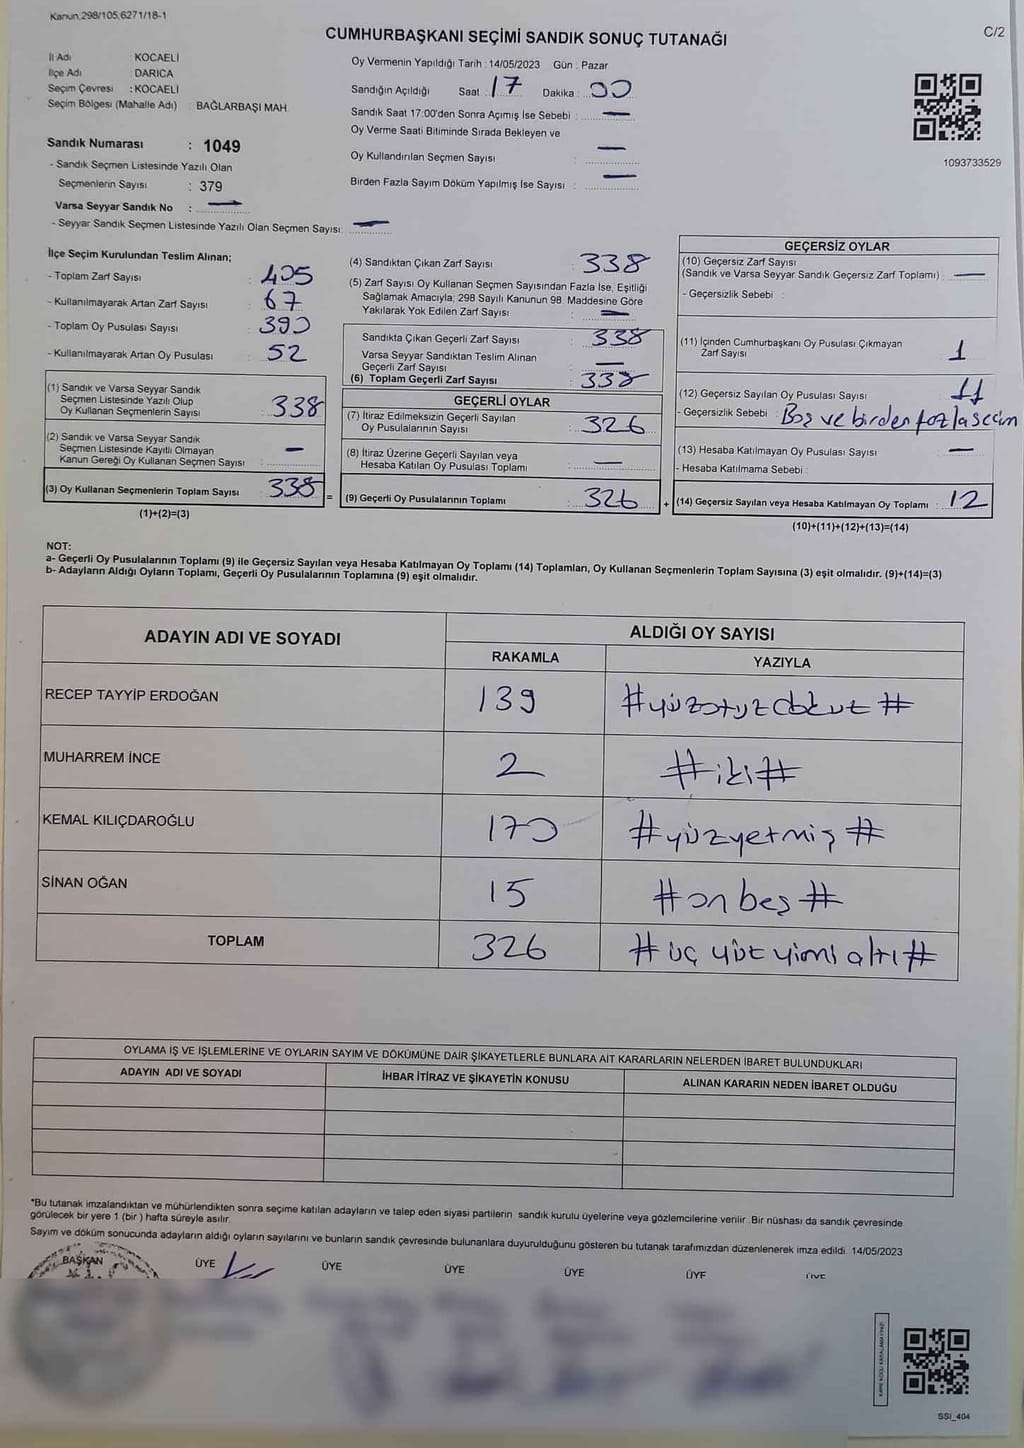 Kanun,298/105,6271/18-1
CUMHURBAŞKANI SEÇİMİ SANDIK SONUÇ TUTANAĞI
C/2
İl Adı : KOCAELİ
İlçe Adı : DARICA
Seçim Çevresi : KOCAELİ
Seçim Bölgesi (Mahalle Adı) : BAĞLARBAŞI MAH.
Sandık Numarası : 1049
- Sandık Seçmen Listesinde Yazılı Olan
Seçmenlerin Sayısı : 379
Varsa Seyyar Sandık No : —
- Seyyar Sandık Seçmen Listesinde Yazılı Olan Seçmen Sayısı: —
Oy Vermenin Yapıldığı Tarih : 14/05/2023 Gün : Pazar
Sandığın Açıldığı Saat : 17 Dakika : 00
Sandık Saat 17:00'den Sonra Açımış İse Sebebi : —
Oy Verme Saati Bitiminde Sırada Bekleyen ve
Oy Kullandırılan Seçmen Sayısı : —
Birden Fazla Sayım Döküm Yapılmış İse Sayısı : —
1093733529
İlçe Seçim Kurulundan Teslim Alınan;
- Toplam Zarf Sayısı : 405
- Kullanılmayarak Artan Zarf Sayısı : 67
- Toplam Oy Pusulası Sayısı : 390
- Kullanılmayarak Artan Oy Pusulası : 52
(1) Sandık ve Varsa Seyyar Sandık
Seçmen Listesinde Yazılı Olup
Oy Kullanan Seçmenlerin Sayısı : 338
(2) Sandık ve Varsa Seyyar Sandık
Seçmen Listesinde Kayıtlı Olmayan
Kanun Gereği Oy Kullanan Seçmen Sayısı : —
(3) Oy Kullanan Seçmenlerin Toplam Sayısı : 338
(1)+(2)=(3)
(4) Sandıktan Çıkan Zarf Sayısı : 338
(5) Zarf Sayısı Oy Kullanan Seçmen Sayısından Fazla İse, Eşitliği
Sağlamak Amacıyla, 298 Sayılı Kanunun 98. Maddesine Göre
Yakılarak Yok Edilen Zarf Sayısı : —
Sandıkta Çıkan Geçerli Zarf Sayısı : 338
Varsa Seyyar Sandıktan Teslim Alınan
Geçerli Zarf Sayısı : —
(6) Toplam Geçerli Zarf Sayısı : 338
GEÇERLİ OYLAR
(7) İtiraz Edilmeksizin Geçerli Sayılan
Oy Pusulalarının Sayısı : 326
(8) İtiraz Üzerine Geçerli Sayılan veya
Hesaba Katılan Oy Pusulası Toplamı : —
= (9) Geçerli Oy Pusulalarının Toplamı : 326
GEÇERSİZ OYLAR
(10) Geçersiz Zarf Sayısı
(Sandık ve Varsa Seyyar Sandık Geçersiz Zarf Toplamı) : —
- Geçersizlik Sebebi :
(11) İçinden Cumhurbaşkanı Oy Pusulası Çıkmayan
Zarf Sayısı : 1
(12) Geçersiz Sayılan Oy Pusulası Sayısı : 11
- Geçersizlik Sebebi : Boş ve birden fazla seçim
(13) Hesaba Katılmayan Oy Pusulası Sayısı : —
- Hesaba Katılmama Sebebi :
+ (14) Geçersiz Sayılan veya Hesaba Katılmayan Oy Toplamı : 12
(10)+(11)+(12)+(13)=(14)
NOT:
a- Geçerli Oy Pusulalarının Toplamı (9) ile Geçersiz Sayılan veya Hesaba Katılmayan Oy Toplamı (14) Toplamları, Oy Kullanan Seçmenlerin Toplam Sayısına (3) eşit olmalıdır. (9)+(14)=(3)
b- Adayların Aldığı Oyların Toplamı, Geçerli Oy Pusulalarının Toplamına (9) eşit olmalıdır.
ADAYIN ADI VE SOYADI
ALDIĞI OY SAYISI
RAKAMLA YAZIYLA
RECEP TAYYİP ERDOĞAN 139 #yüzotuzdokuz#
MUHARREM İNCE 2 #iki#
KEMAL KILIÇDAROĞLU 170 #yüzyetmiş#
SİNAN OĞAN 15 #on beş#
TOPLAM 326 #üç yüz yirmi altı#
OYLAMA İŞ VE İŞLEMLERİNE VE OYLARIN SAYIM VE DÖKÜMÜNE DAİR ŞİKAYETLERLE BUNLARA AİT KARARLARIN NELERDEN İBARET BULUNDUKLARI
ADAYIN ADI VE SOYADI İHBAR İTİRAZ VE ŞİKAYETİN KONUSU ALINAN KARARIN NEDEN İBARET OLDUĞU
*Bu tutanak imzalandıktan ve mühürlendikten sonra seçime katılan adayların ve talep eden siyasi partilerin sandık kurulu üyelerine veya gözlemcilerine verilir .Bir nüshası da sandık çevresinde
görülecek bir yere 1 (bir ) hafta süreyle asılır.
Sayım ve döküm sonucunda adayların aldığı oyların sayılarını ve bunların sandık çevresinde bulunanlara duyurulduğunu gösteren bu tutanak tarafımızdan düzenlenerek imza edildi. 14/05/2023
BAŞKAN ÜYE ÜYE ÜYE ÜYE ÜYE ÜYE
SSI_404